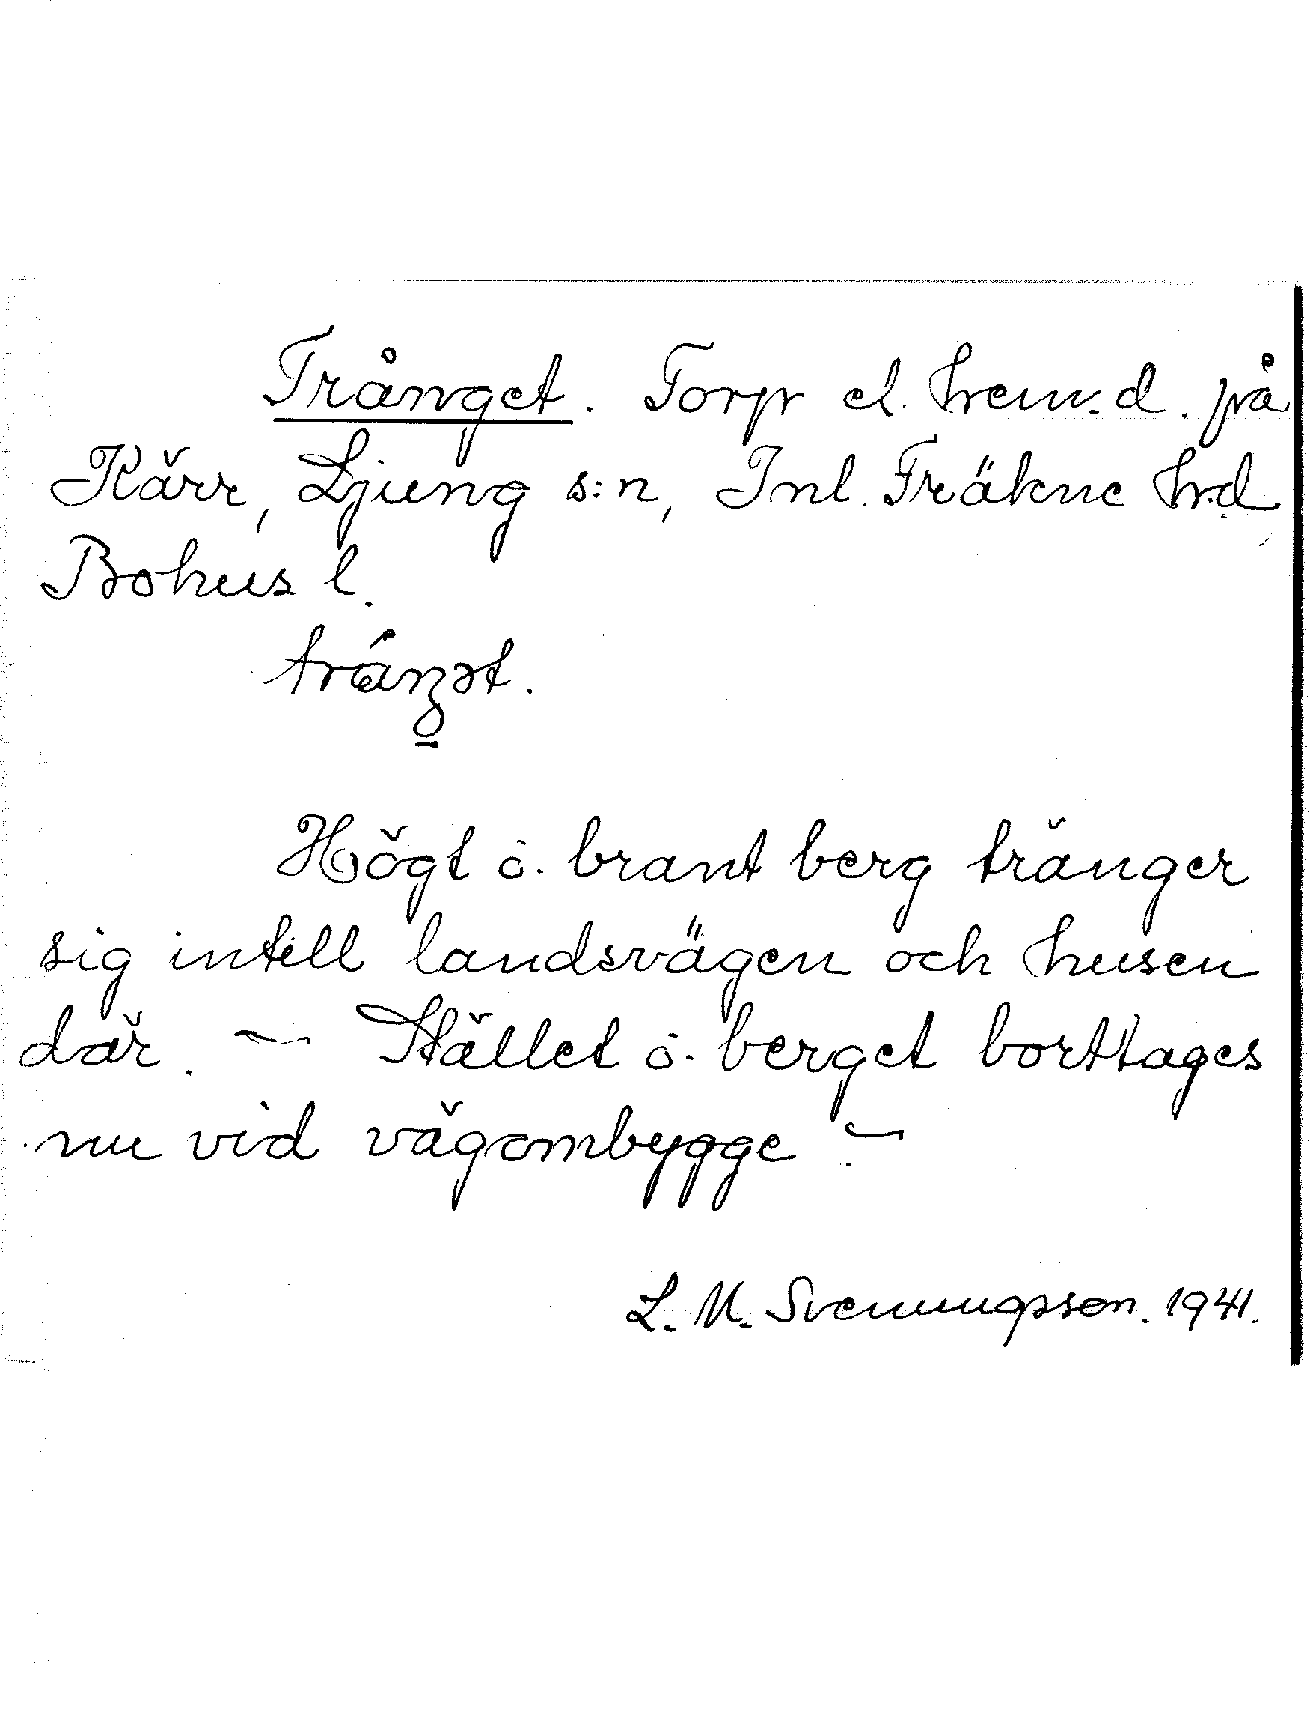 Trånget. Torp el. hem.d. på
Kärr, Ljung s:n, Inl. Fräkne hd.
Bohus l.
Högt o. brant berg tränger
sig intill landsvägen och husen
där. — Stället o. berget borttages
nu vid vägombygge —
L. M. Svenungsson. 1941.